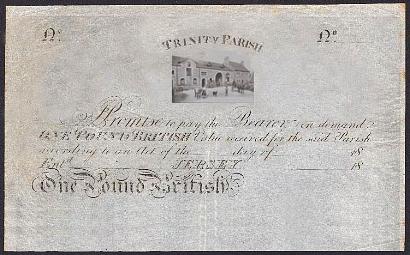 No. No.
TRINITY PARISH
I Promise to pay the Bearer on demand
ONE POUND BRITISH Value received for the said Parish
according to an Act of the day of 18
Entd. JERSEY 18
One Pound British